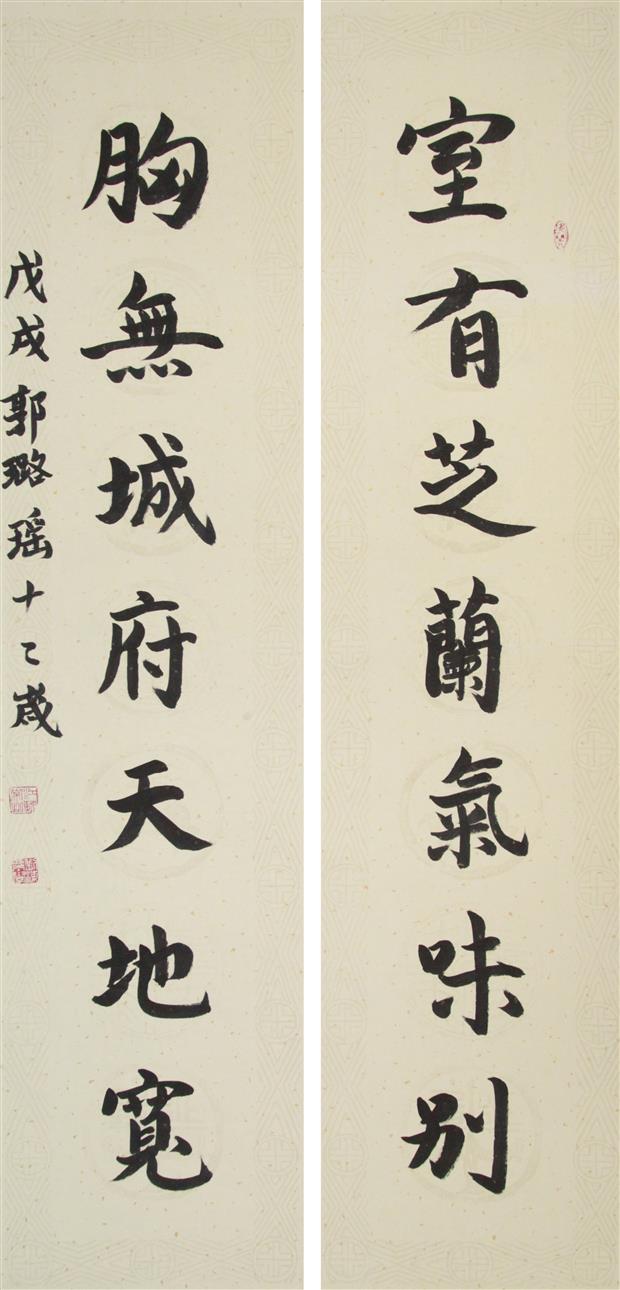 室有芝蘭氣味别
胸無城府天地寬
戊戌郭璐瑶十二歲